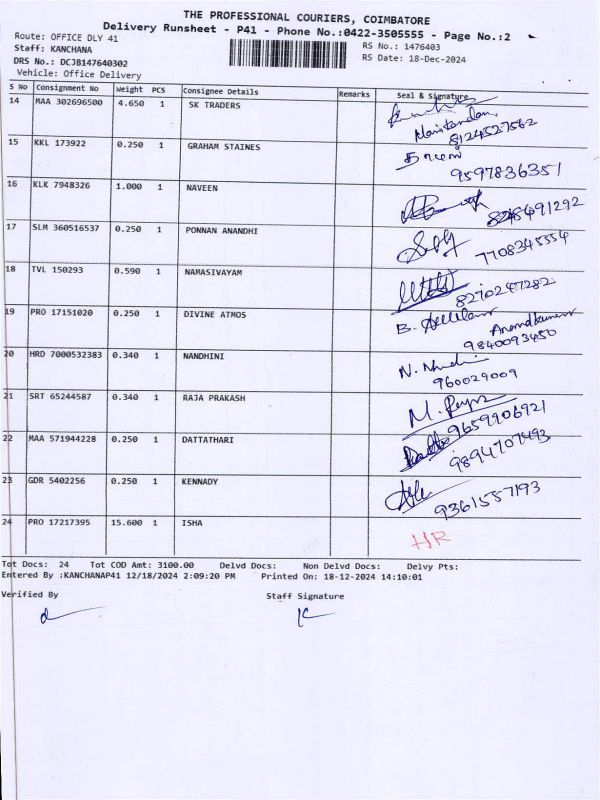 THE PROFESSIONAL COURIERS, COIMBATORE
Delivery Runsheet - P41 - Phone No.:0422-3505555 - Page No.:2
Route: OFFICE DLY 41
RS No.: 1476403
Staff: KANCHANA
RS Date: 18-Dec-2024
DRS No.: DCJB147640302
Vehicle: Office Delivery
S No Consignment No Weight PCS Consignee Details Remarks Seal & Signature
14 MAA 302696500 4.650 1 SK TRADERS
Manikandan
8124527562
15 KKL 173922 0.250 1 GRAHAM STAINES
9597836351
16 KLK 7948326 1.000 1 NAVEEN
17 SLM 360516537 0.250 1 PONNAN ANANDHI
7708345554
18 TVL 150293 0.590 1 NAMASIVAYAM
8270247282
19 PRO 17151020 0.250 1 DIVINE ATMOS
Anandkumar
9840093450
20 HRD 7000532383 0.340 1 NANDHINI
960029009
21 SRT 65244587 0.340 1 RAJA PRAKASH
9659906921
22 MAA 571944228 0.250 1 DATTATHARI
9894707493
23 GDR 5402256 0.250 1 KENNADY
9361557193
24 PRO 17217395 15.600 1 ISHA
HR
Tot Docs: 24 Tot COD Amt: 3100.00 Delvd Docs: Non Delvd Docs: Delvy Pts:
Entered By :KANCHANAP41 12/18/2024 2:09:20 PM Printed On: 18-12-2024 14:10:01
Verified By Staff Signature